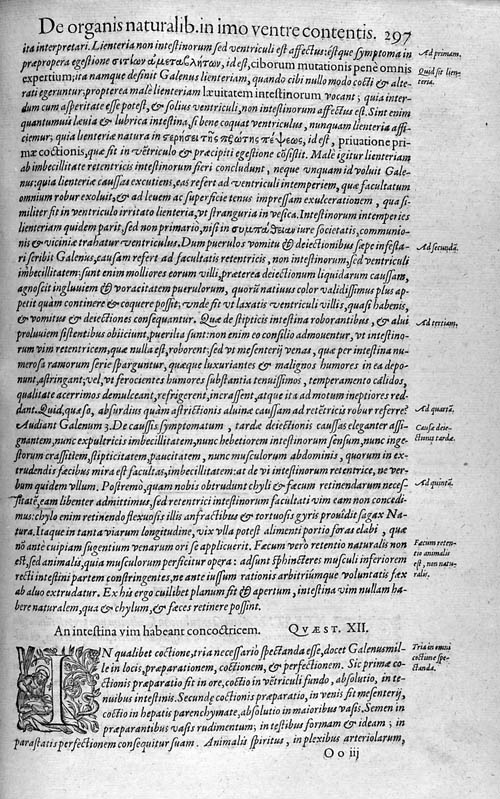 De organis naturalib. in imo ventre contentis. 297
ita interpretari. Lienteria non intestinorum sed ventriculi est affectus: éstque symptoma in
præpropera egestione σιτίων ἀμεταβλήτων, id est, ciborum mutationis penè omnis
expertium; ita namque definit Galenus lienteriam, quando cibi nullo modo cocti & alte-
rati egeruntur: propterea malè lienteriam læuitatem intestinorum vocant; quia inter-
dum cum asperitate esse potest, & solius ventriculi, non intestinorum affectus est. Sint enim
quantumuis læuia & lubrica intestina, si bene coquat ventriculus, nunquam lienteria affi-
ciemur; quia lienteriæ natura in στερήσει τῆς πρώτης πέψεως, id est, priuatione pri-
mæ coctionis, quæ fit in vẽtriculo & præcipiti egestione cõsistit. Malè igitur lienteriam
ab imbecillitate retentricis intestinorum fieri concludunt, neque vnquam id voluit Gale-
nus: quia lienteriæ caussas excutiens, eas refert ad ventriculi intemperiem, quæ facultatum
omnium robur exoluit, & ad leuem ac superficie tenus impressam exulcerationem, qua si-
militer fit in ventriculo irritato lienteria, vt stranguria in vesica. Intestinorum intemperies
lienteriam quidem parit, sed non primario, nisi in συμπαθείαν iure societatis, communio-
nis & viciniæ trahatur ventriculus. Dum puerulos vomitu & deiectionibus sæpe infesta-
ri scribit Galenus, caussam refert ad facultatis retentricis, non intestinorum, sed ventriculi
imbecillitatem: sunt enim molliores eorum villi; præterea deiectionum liquidarum caussam,
agnoscit ingluuiem & voracitatem puerulorum, quorũ natiuus calor validissimus plus ap-
petit quàm continere & coquere possit; vnde fit vt laxatis ventriculi villis, quasi habenis,
& vomitus & deiectiones consequantur. Quæ de stipticis intestina roborantibus, & alui
proluuiem sistentibus obiiciunt, puerilia sunt: non enim eo consilio admouentur, vt intestino-
rum vim retentricem, quæ nulla est, roborent: sed vt mesenterij venas, quæ per intestina nu-
merosa ramorum serie sparguntur, quæque luxuriantes & malignos humores in ea depo-
nunt, astringant; vel, vt ferocientes humores substantia tenuissimos, temperamento calidos,
qualitate acerrimos demulceant, refrigerent, incrassent, atque ita ad motum ineptiores red-
dant. Quid, quæso, absurdius quàm astrictionis aluinæ caussam ad retẽtricis robur referre?
Audiant Galenum 3. De caussis symptomatum, tardæ deiectionis caussas eleganter assi-
gnantem, nunc expultricis imbecillitatem, nunc hebetiorem intestinorum sensum, nunc inge-
storum crassitiem, stipticitatem, paucitatem, nunc musculorum abdominis, quorum in ex-
trudendis fæcibus mira est facultas, imbecillitatem: at de vi intestinorum retentrice, ne ver-
bum quidem vllum. Postremò, quam nobis obtrudunt chyli & fæcum retinendarum neces-
sitatẽ, eam libenter admittimus, sed retentrici intestinorum facultati vim eam non concedi-
mus: chylo enim retinendo flexuosis illis anfractibus & tortuosis gyris prouidit sagax Na-
tura. Itaque in tanta viarum longitudine, vix vlla potest alimenti portio foras elabi, quæ
nõ antè cuipiam sugentium venarum ori se applicuerit. Fæcum verò retentio naturalis non
est, sed animalis, quia musculorum perficitur opera: adsunt sphincteres musculi inferiorem
recti intestini partem constringentes, ne ante iussum rationis arbitriúmque voluntatis fæx
ab aluo extrudatur. Ex his ergo cuilibet planum fit & apertum, intestina vim nullam ha-
bere naturalem, qua & chylum, & fæces retinere possint.
Ad primam.
Quid sit lien-
teria.
Ad secundã.
Ad tertiam.
Ad quartã.
Causæ deie-
ctionis tardæ.
Ad quintã.
Fæcum reten-
tio animalis
est, non natu-
ralis.
An intestina vim habeant concoctricem. QVÆST. XII.
IN qualibet coctione, tria necessario spectanda esse, docet Galenus mil-
le in locis, præparationem, coctionem, & perfectionem. Sic primæ co-
ctionis præparatio fit in ore, coctio in vẽtriculi fundo, absolutio, in te-
nuibus intestinis. Secundæ coctionis præparatio, in venis fit mesenterij,
coctio in hepatis parenchymate, absolutio in maioribus vasis. Semen in
præparantibus vasis rudimentum; in testibus formam & ideam; in
parastatis perfectionem consequitur suam. Animalis spiritus, in plexibus arteriolarum,
Tria in omni
coctione spe-
ctanda.
O o iij